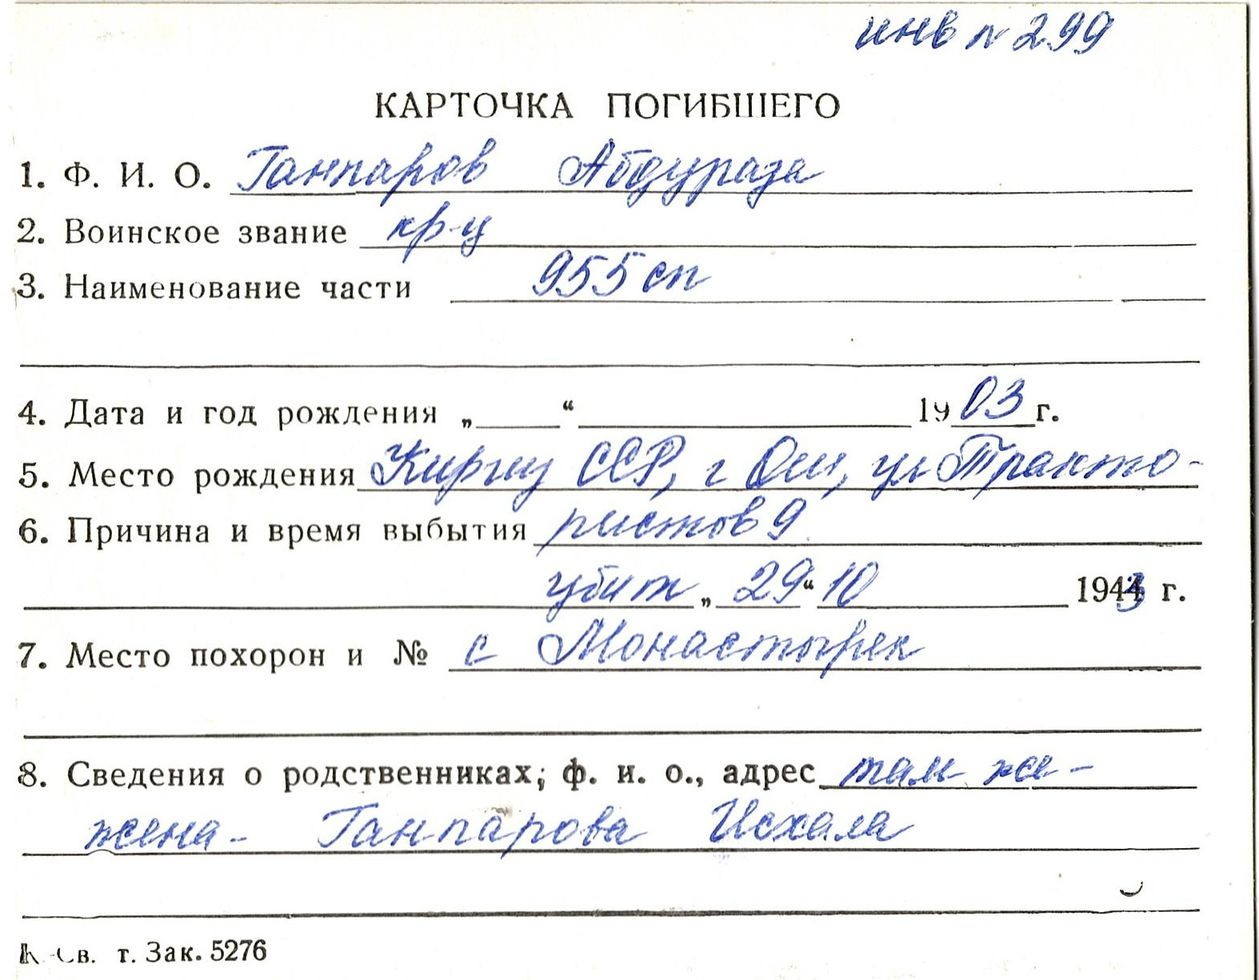 инв № 299
КАРТОЧКА ПОГИБШЕГО
1. Ф. И. О. Ганпаров Абдураза
2. Воинское звание кр-ц
3. Наименование части 955 сп
4. Дата и год рождения „ “ 1903 г.
5. Место рождения Киргиз ССР, г Ош, ул Тракто-
6. Причина и время выбытия ристов 9
убит „ 29 “ 10 1943 г.
7. Место похорон и № с Монастырек
8. Сведения о родственниках; ф. и. о., адрес там же -
жена - Ганпарова Исхала
т. Зак. 5276